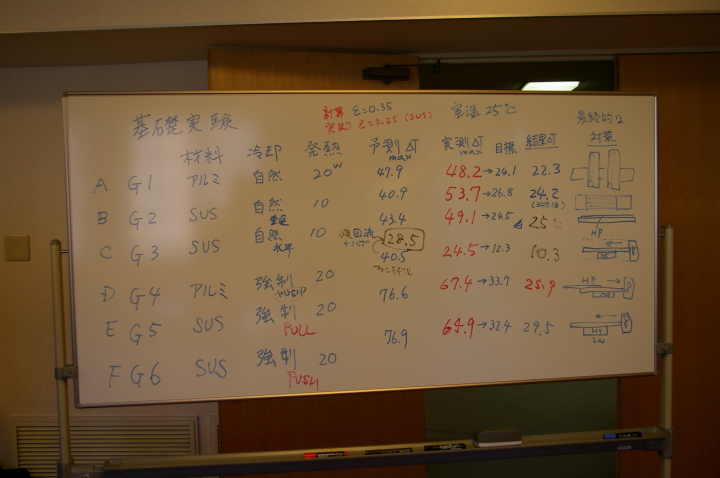 基礎実験
計算 ε=0.35
ε=0.25 (SUS)
室温 25℃
最終的な対策
材料 冷却 発熱 予測ΔT max 実測ΔT max 目標 結果ΔT
A G1 アルミ 自然 20W 47.9 48.2→24.1 22.3
B G2 SUS 自然 垂直 10 40.9 53.7→26.8 24.2
C G3 SUS 自然 水平 10 43.4 49.1→24.5 25
HP
D G4 アルミ 強制 PUSH 20 28.5 40.5 24.5→12.3 10.3
E G5 SUS 強制 PULL 20 76.6 67.4→33.7 25.9
HP
F G6 SUS 強制 PUSH 20 76.9 64.9→32.4 29.5